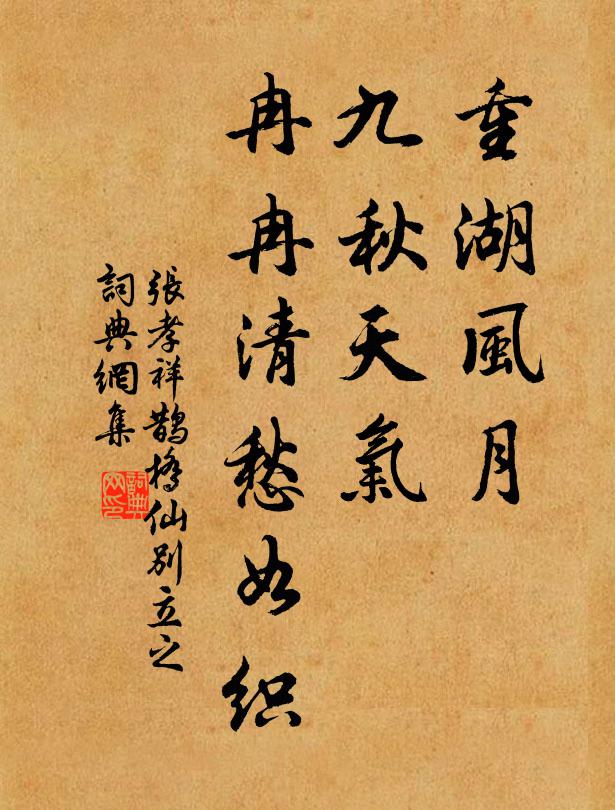 重湖風月
九秋天氣
冉冉清愁如织
張孝祥鵲橋仙別立之
詞典網集
詞典
网印